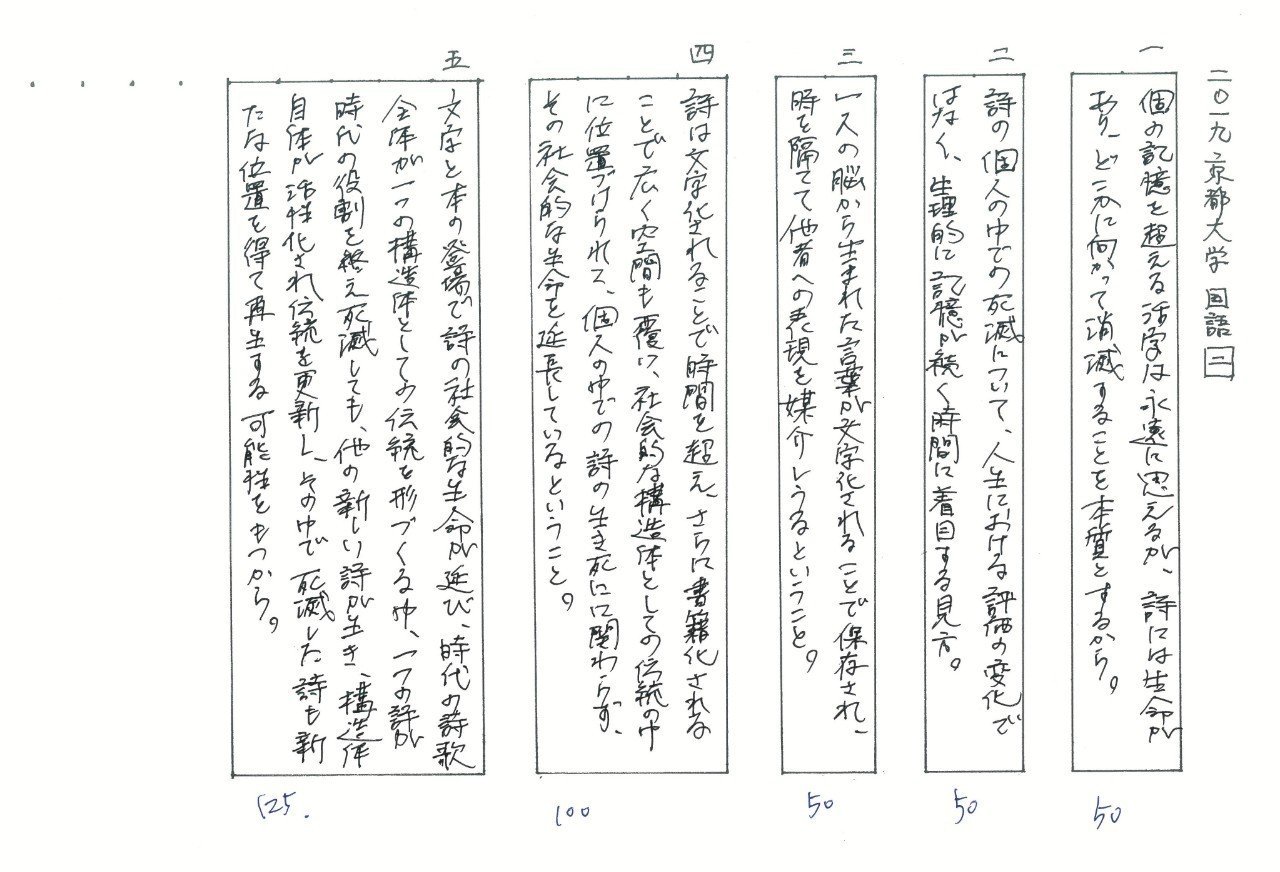 二〇一九 京都大学 国語 二
一
個の記憶を超える活字は永遠に思えるが、詩には生命が
あり、どこかに向かって消滅することを本質とするから。
50
二
詩の個人の中での死滅について、人生における評価の変化で
はなく、生理的に記憶が続く時間に着目する見方。
50
三
一人の脳から生まれた言葉が文字化されることで保存され、
時を隔てて他者への表現を媒介しうるということ。
50
四
詩は文字化されることで時間を超え、さらに書籍化される
ことで広く空間も覆い、社会的な構造体としての伝統の中
に位置づけられて、個人の中での詩の生き死にに関わらず、
その社会的な生命を延長しているということ。
100
五
文字と本の登場で詩の社会的な生命が延び、時代の詩歌
全体が一つの構造体としての伝統を形づくる中、一つの詩が
時代の役割を終え死滅しても、他の新しい詩が生き、構造体
自体が活性化され伝統を更新し、その中で死滅した詩も新
たな位置を得て再生する可能性をもつから。
125.